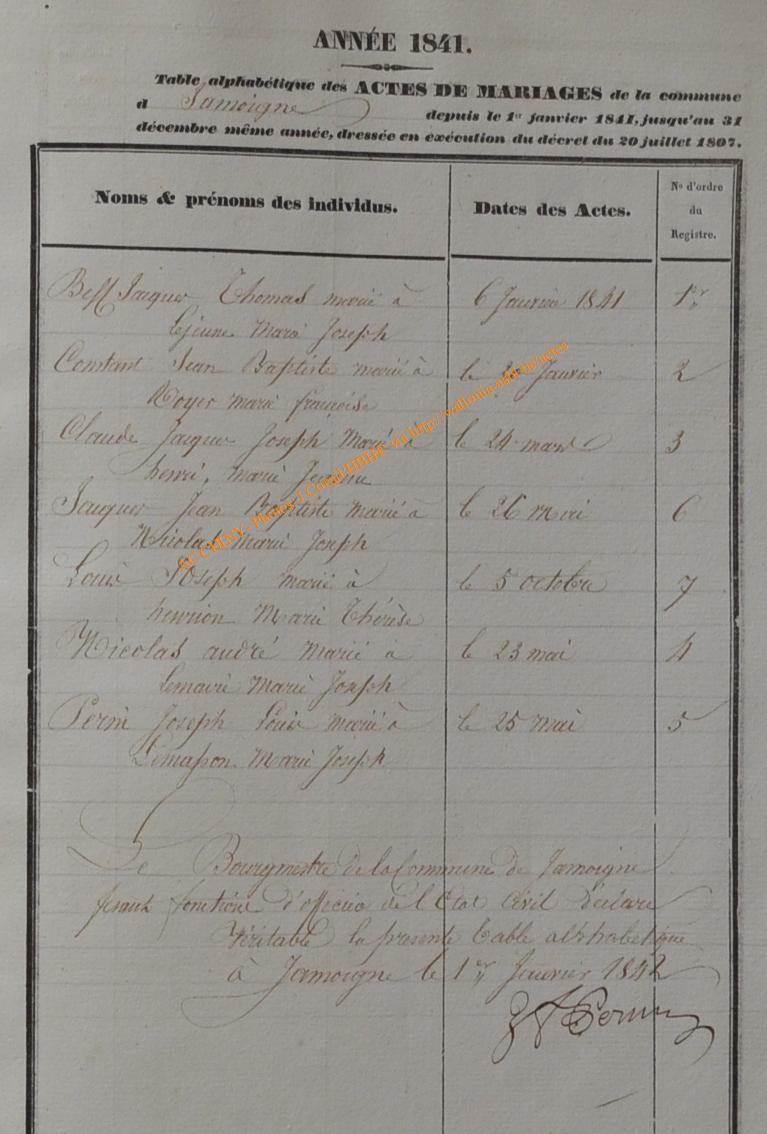 ANNÉE 1841.
Table alphabétique des ACTES DE MARIAGES de la commune
d Jamoigne depuis le 1er janvier 1841, jusqu'au 31
décembre même année, dressée en exécution du décret du 20 juillet 1807.
Noms & prénoms des individus. Dates des Actes. No d'ordre du Registre.
Jacques Thomas marié à 6 Janvier 1841 1er
Lejeune Marie Joseph
Constant Jean Baptiste marié à le Janvier 2
Noyer marie françoise
Claude Jacques Joseph Marié à le 24 mars 3
henri, marie
Jacques Jean Baptiste Marié à le 26 Mai 6
Nicolas Marie Joseph
Louis Joseph marié à le 5 octobre 7
henrion Marie Thérèse
Nicolas andré Marié à le 23 mai 4
Lemaire Marie Joseph
Perin Joseph Louis marié à le 25 Mai 5
Lemasson Marie Joseph
Le Bourgmestre de la Commune de Jamoigne
fesant fonctions d'officier de l'Etat Civil déclare
Véritable la présente table alphabétique
à Jamoigne le 1er Janvier 1842